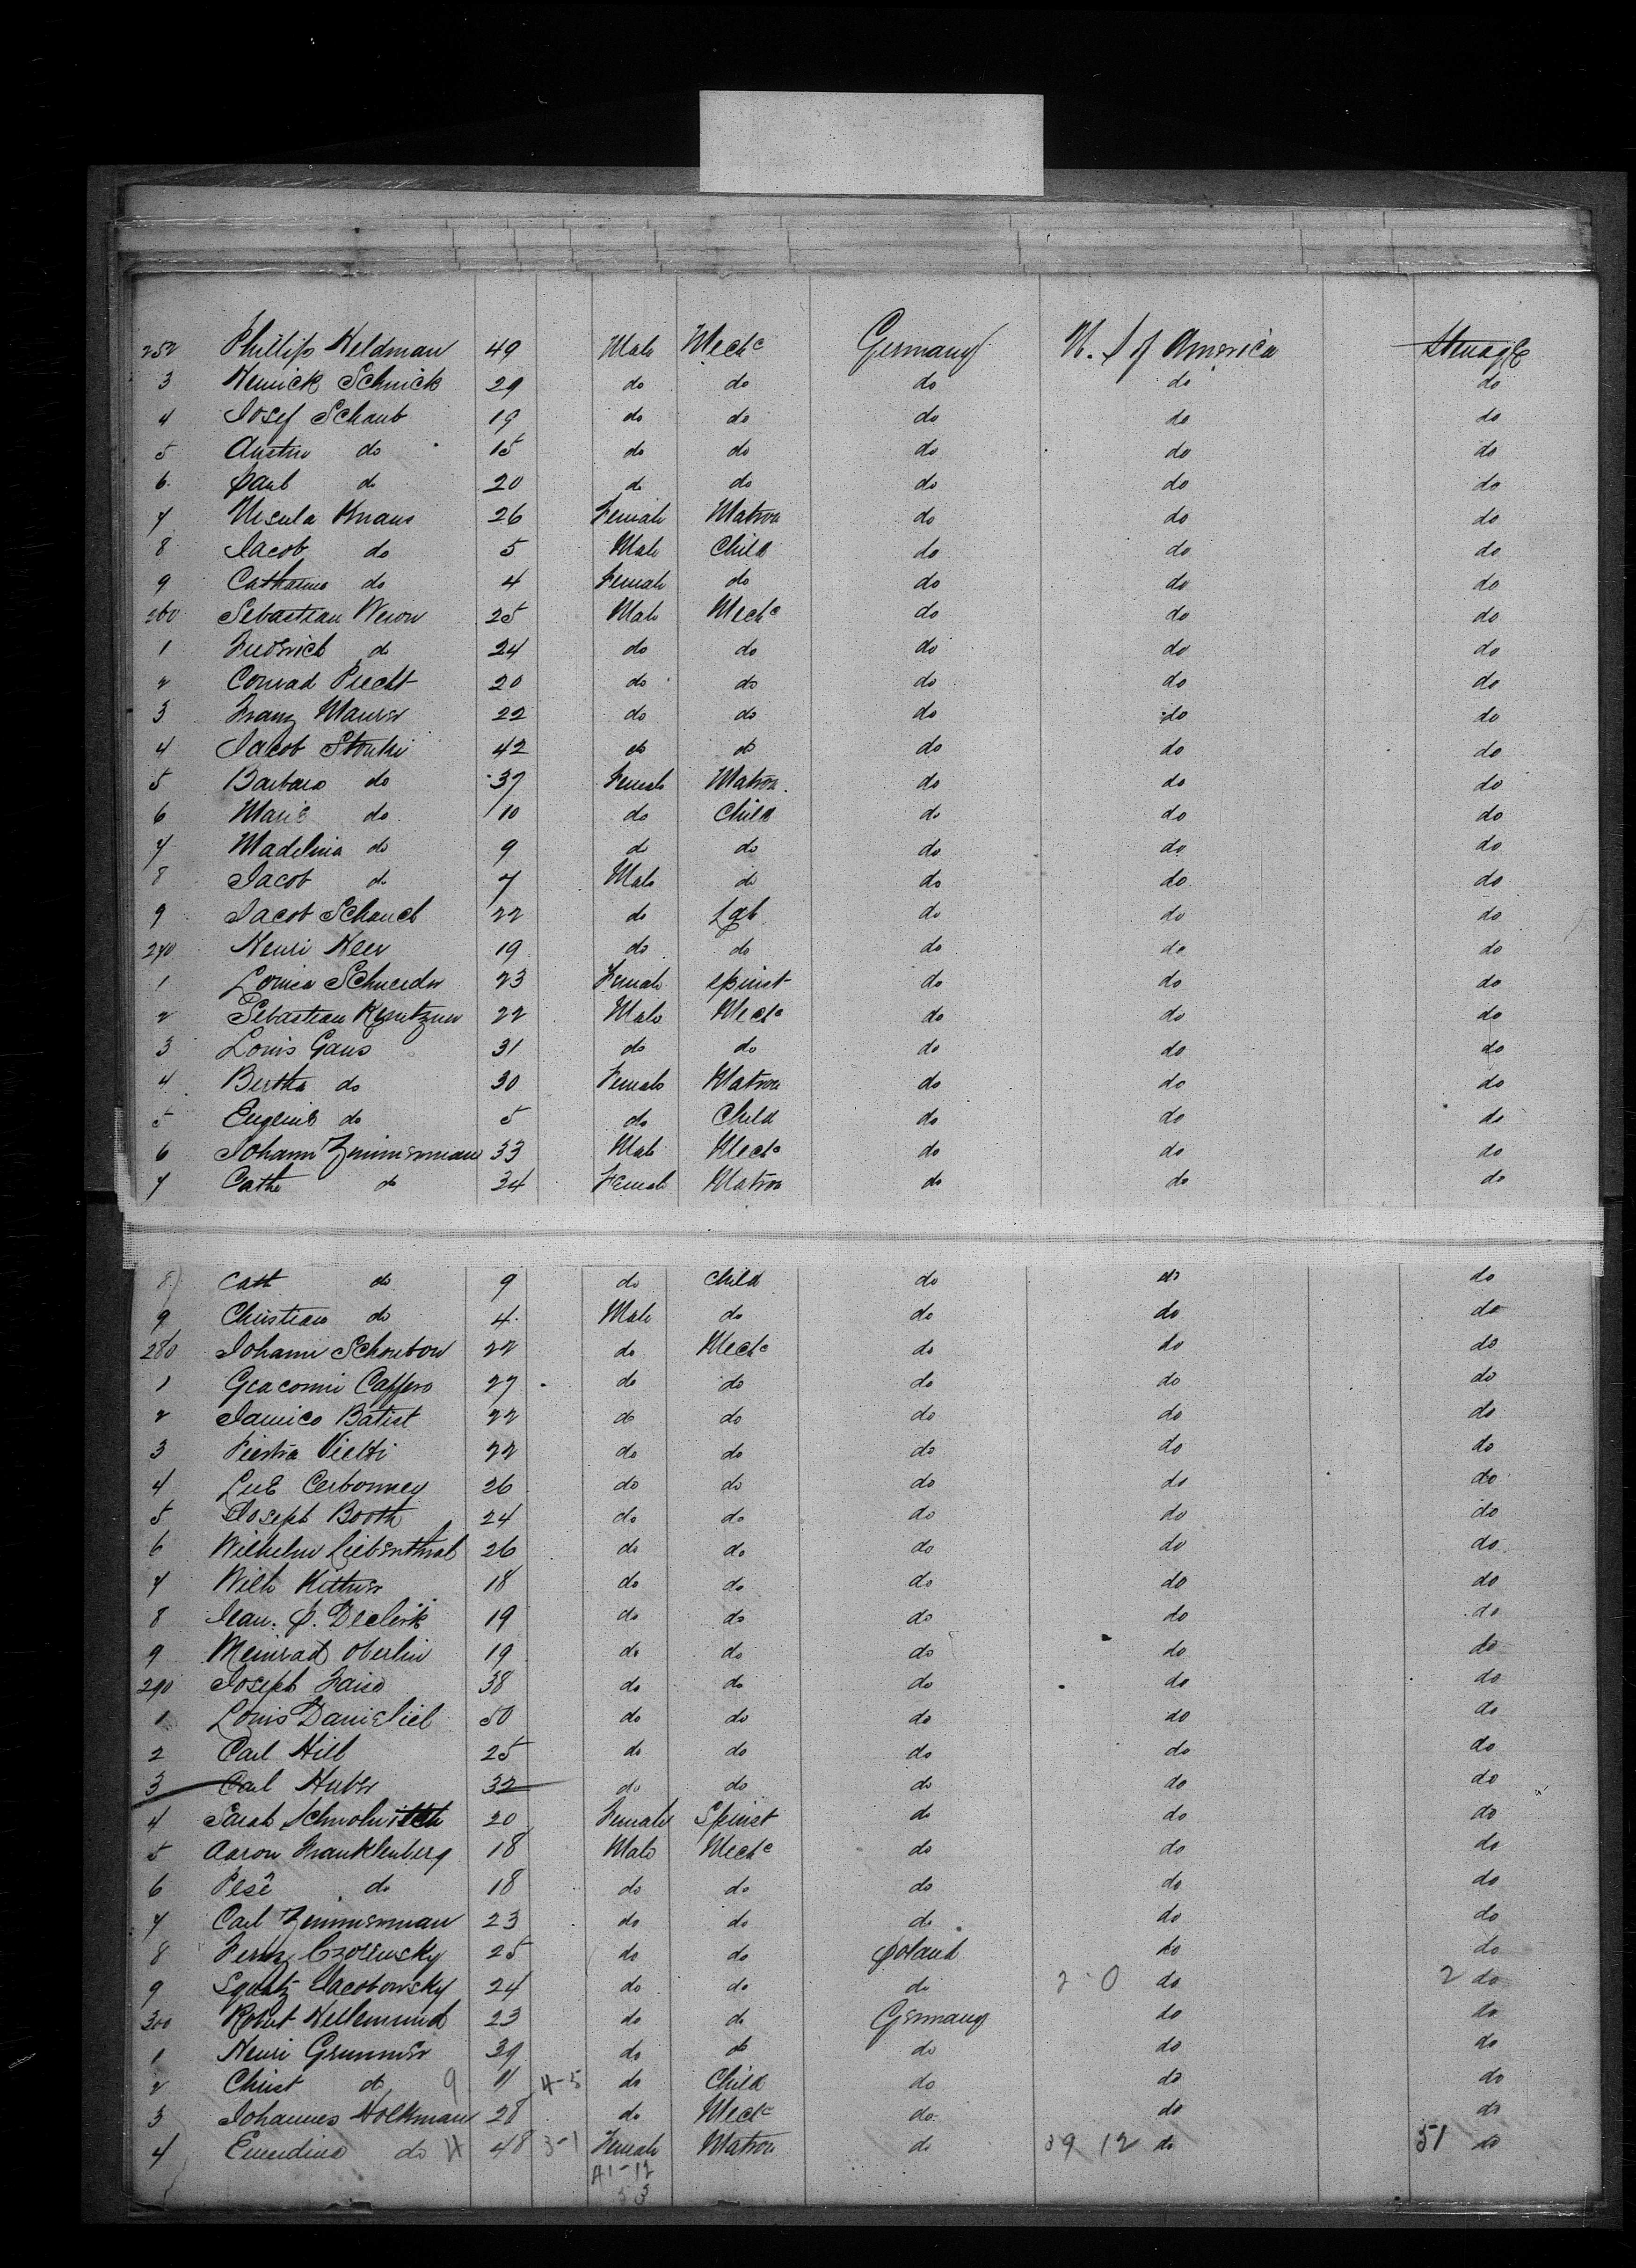 252 Phillip Heldman 49 Male Mechc Germany U. S of America Steuage
3 Henrick Schnick 29 do do do do do
4 Josef Schaub 19 do do do do do
5 Austin do 15 do do do do do
6 Paul do 20 do do do do do
7 Ursula Knaus 26 Female Matron do do do
8 Jacob do 5 Male Child do do do
9 Catharina do 4 Female do do do do
260 Sebastian 25 Male Mechc do do do
1 Fredrich do 24 do do do do do
2 Conrad Precht 20 do do do do do
3 Franz Maurer 22 do do do do do
4 Jacob Stouki 42 do do do do do
5 Barbara do 37 Female Matron do do do
6 Marie do 10 do Child do do do
7 Madelina do 9 do do do do do
8 Jacob do 7 Male do do do do
9 Jacob Schauel 22 do Lab do do do
270 Henri Heer 19 do do do do do
1 Louisa Schneeder 23 Female Spinst do do do
2 Sebastian 22 Male Mechc do do do
3 Louis Gaus 31 do do do do do
4 Bertha do 30 Female Matron do do do
5 Eugenie do 5 do Child do do do
6 Johann Zimmerman 33 Male Mechc do do do
7 Cathe do 34 Female Matron do do do
8 Cath do 9 do Child do do do
9 Christian do 4 Male do do do do
280 Johann Schoubow 22 do Mechc do do do
1 Giacomi Caffero 27 do do do do do
2 Jamico Batist 22 do do do do do
3 Pietra Vietti 22 do do do do do
4 Cerbonney 26 do do do do do
5 Joseph Booth 24 do do do do do
6 Wilhelm Liebenthal 26 do do do do do
7 Wilh Kuttner 18 do do do do do
8 Jean. P. Declerk 19 do do do do do
9 Meinrad Oberlin 19 do do do do do
290 Joseph Faird 38 do do do do do
1 Louis Danieliel 50 do do do do do
2 Carl Hill 25 do do do do do
3 Carl Huber 32 do do do do do
4 Sarah 20 Female Spinst do do do
5 Aaron Franklenberg 18 Male Mechc do do do
6 Pese do 18 do do do do do
7 Carl Zimmerman 23 do do do do do
8 Czolensky 25 do do Poland do do
9 Jacobowsky 24 do do do 2 0 do 2 do
300 Robert Hellemund 23 do do Germany do do
1 Henri Grummer 39 do do do do do
2 Christ do 9 11 4-5 do Child do do do
3 Johannes Holkman 28 do Mechc do do do
4 do H 48 3-1 Female Matron do 39 12 do 51 do
A1-12
53